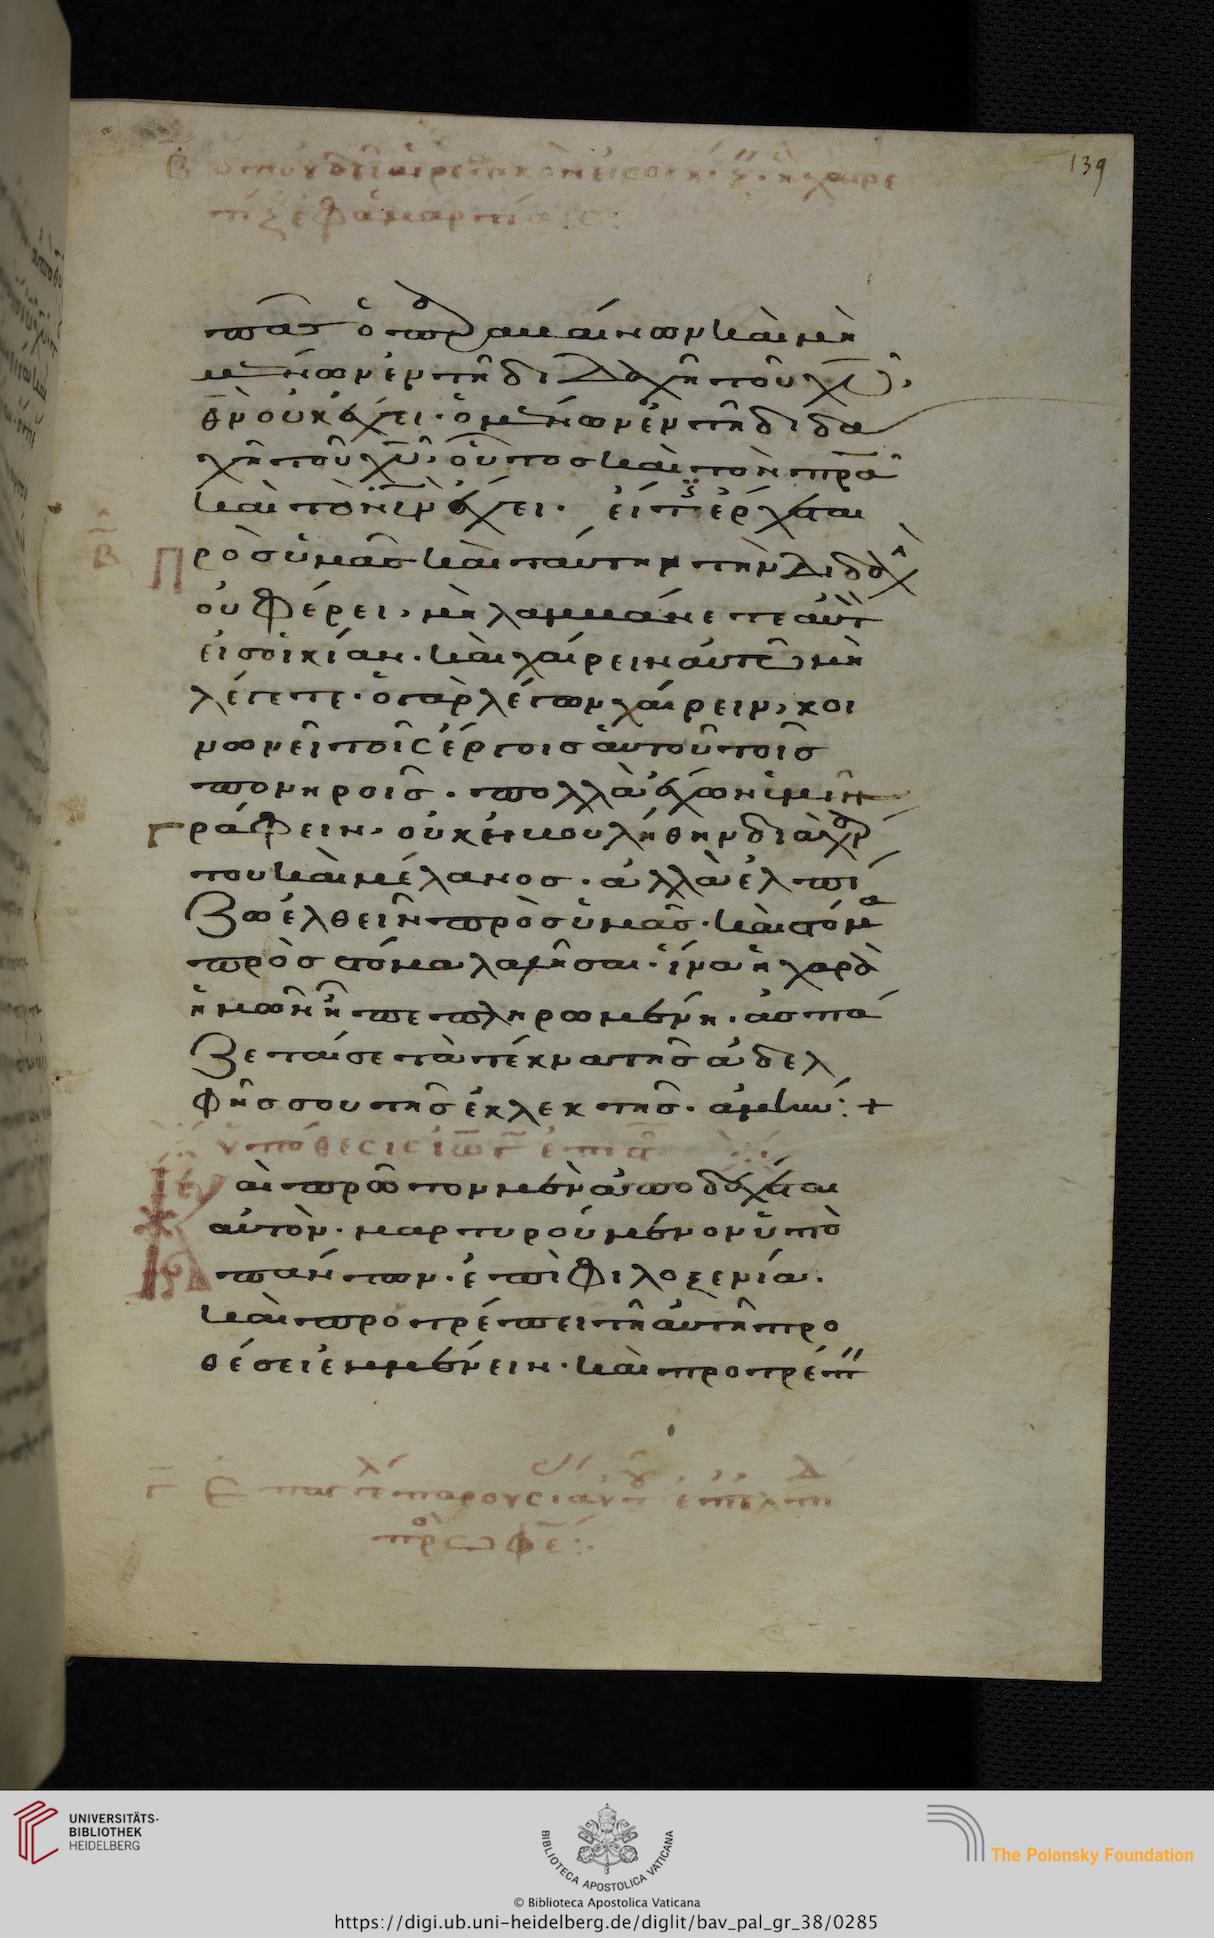 139
Β ὅτι οὐ δεῖ αἱρετικὸν εἰσοικίζειν ἢ χαίρε
τίζειν ἐφ ἁμαρτίαις:
πᾶς ὁ παραβαίνων καὶ μὴ
μένων ἐν τῆ διδαχῆ τοῦ χυ,
θν οὐκ ἔχει· ὁ μένων ἐν τῆ διδα
χῆ τοῦ χυ, οὗτος καὶ τὸν πρα
καὶ τὸν υν ἔχει· εἴ τις ἔρχεται
Β Πρὸς ὑμᾶς καὶ ταύτην τὴν διδαχ
οὐ φέρει, μὴ λαμβάνετε αὐτ
εἰς οἰκίαν· καὶ χαίρειν αὐτῶ μὴ
λέγετε· ὁ γὰρ λέγων χαίρειν, κοι
νωνεῖ τοῖς ἔργοις αὐτοῦ τοῖς
πονηροῖς· πολλὰ ἔχων ὑμῖν
γράφειν, οὐκ ἐβουλήθην διὰ χάρ
του καὶ μέλανος· ἀλλὰ ἐλπί
ζω ἐλθεῖν πρὸς ὑμᾶς· καὶ στόμα
πρὸς στόμα λαλῆσαι· ἵνα ἡ χαρὰ
ἡμῶν ἦ πεπληρωμένη· ἀσπά
ζεταί σε τὰ τέκνα τῆς ἀδελ
φῆς σου τῆς ἐκλεκτῆς· ἀμήν: +
ὑπόθεσις ἰω γ ἐπι
Καὶ πρῶτον μὲν ἀποδέχεται
αὐτὸν· μαρτυρούμενον ὑπὸ
πάντων· ἐπὶ φιλοξενία·
καὶ προτρέπει τῆ αὐτῆ προ
θέσει ἐμμένειν· καὶ προτρέπ
Γ Ἐπαγγελί παρουσίας αὐτ ἐπ ἐλπίδ
προς ὠφε:
UNIVERSITÄTS-
BIBLIOTHEK
HEIDELBERG
BIBLIOTECA APOSTOLICA VATICANA
The Polonsky Foundation
© Biblioteca Apostolica Vaticana
https://digi.ub.uni-heidelberg.de/diglit/bav_pal_gr_38/0285